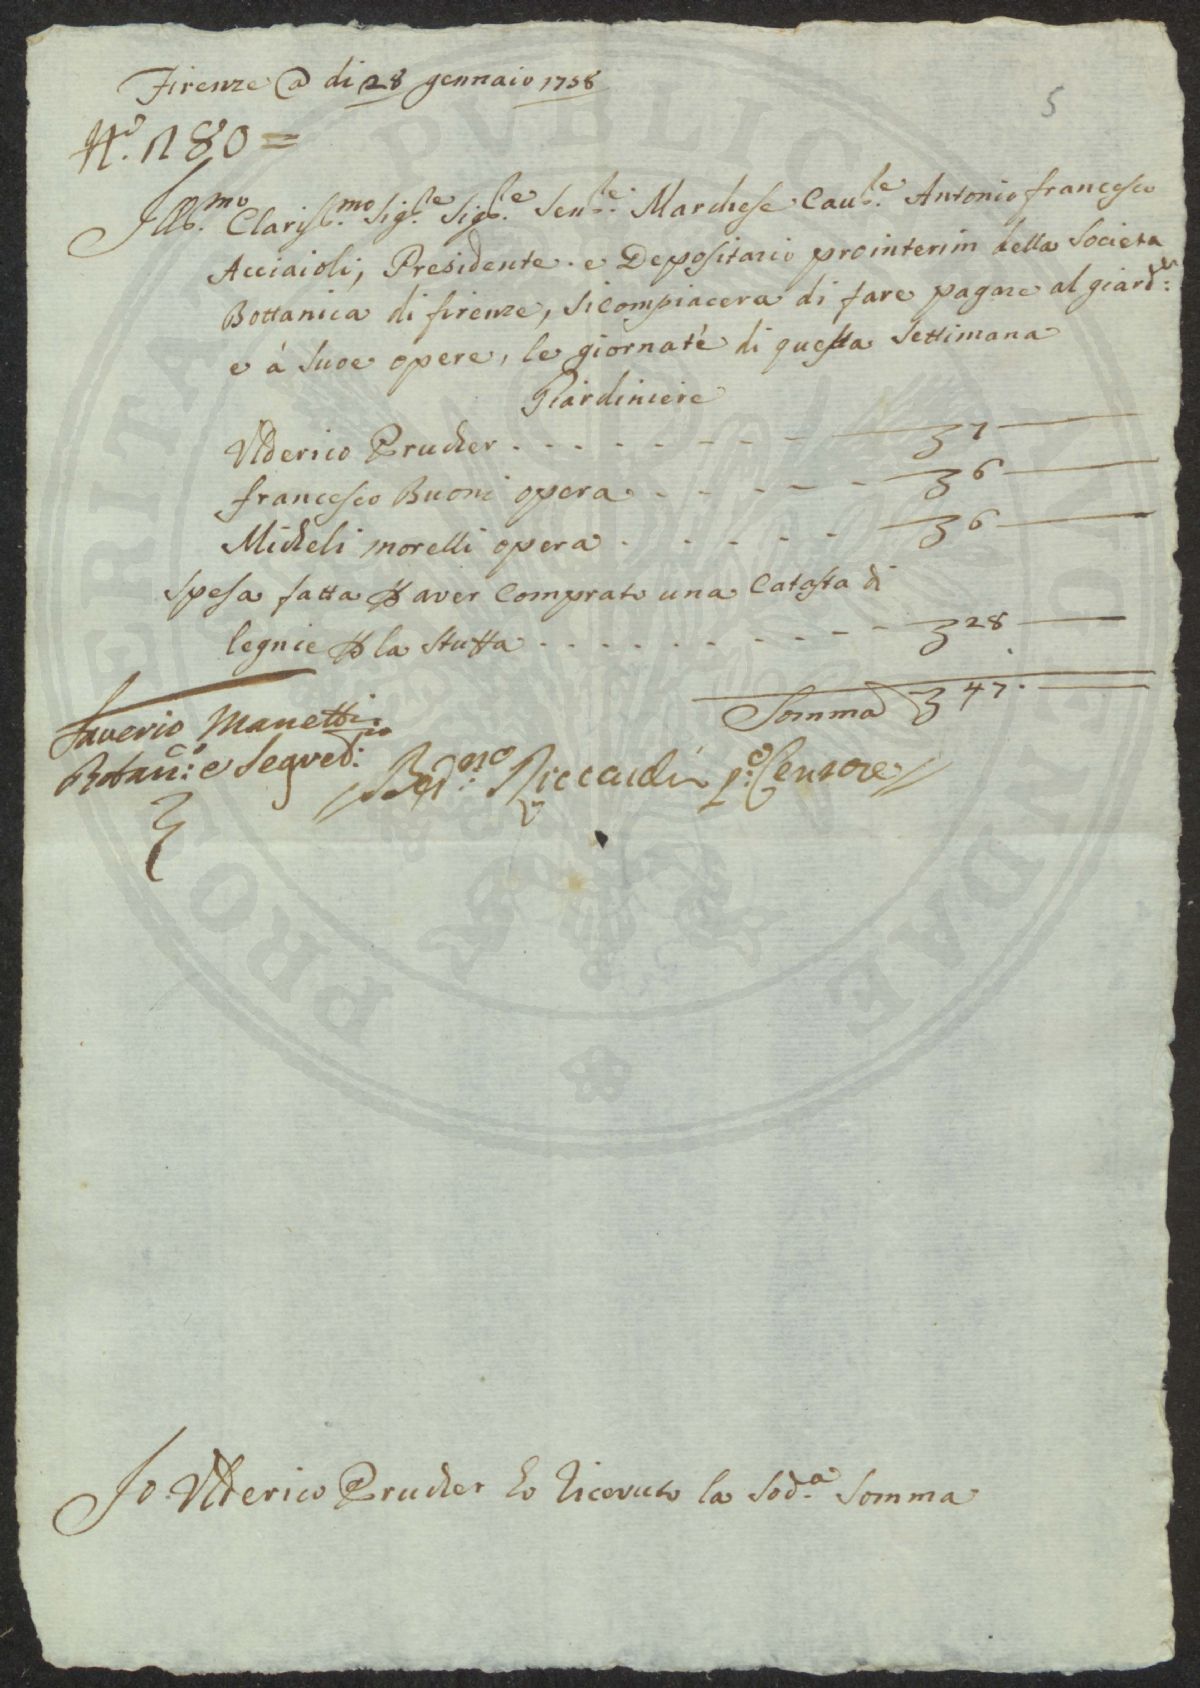 Firenze @ di 28 gennaio 1758
5
N.º 180 =
Ill.mo Clariss.mo Sig.re Sig.re Sen.re Marchese Cau.re Antonio francesco
Acciaioli, Presidente e Depositario prointerim della Societa
Bottanica di firenze, si compiacera di fare pagare al giard.re
e á Suoe opere, le giornate di questa Settimana
Giardiniere
Ulderico Prucher - - - - - - - 7
francesco Buoni opera - - - - - 6
Micheli morelli opera - - - - - 6
Spesa fatta p aver Comprato una Catasta di
legnie p la stuffa - - - - - - - 28
Somma 47
Saverio Manetti
Botan.co e Seg.
Riccardi p.º Censore
Io Ulderico Prucher ho ricevuto la Sod.a Somma
PROSPERITATI PVBLICAE